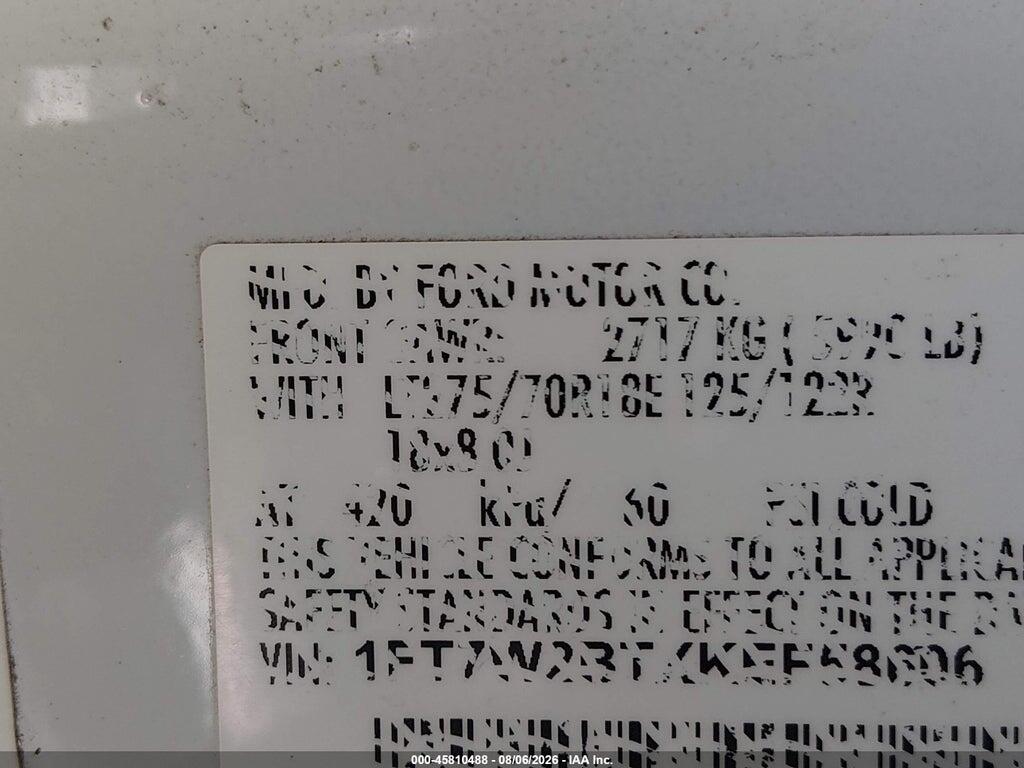 MFD. BY FORD MOTOR CO.
FRONT GAWR: 2717 KG ( 5990 LB)
WITH LT275/70R18E 125/122R
18x8.0J
AT 420 kPa/ 60 PSI COLD
THIS VEHICLE CONFORMS TO ALL APPLICA
SAFETY STANDARDS IN EFFECT ON THE DA
VIN:
000-45810488 - 08/06/2026 - IAA Inc.